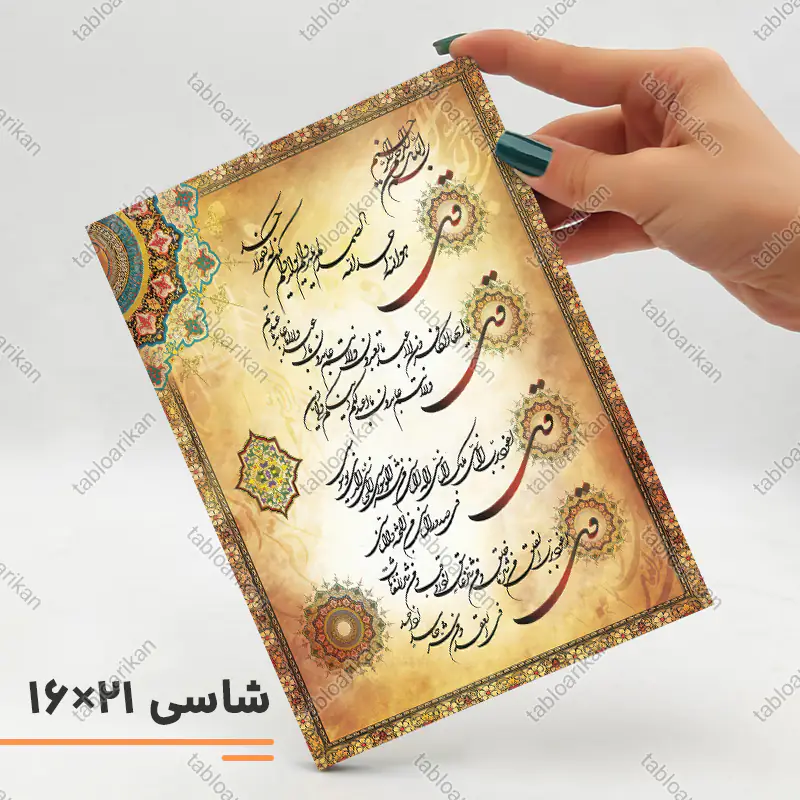 بسم الله الرحمن الرحیم
قل
هو الله احد الله الصمد لم یلد و لم یولد و لم یکن له کفوا احد
قل
یا ایها الکافرون لا اعبد ما تعبدون و لا انتم عابدون ما اعبد و لا انا عابد ما عبدتم
و لا انتم عابدون ما اعبد لکم دینکم ولی دین
قل
اعوذ برب الناس ملک الناس اله الناس من شر الوسواس الخناس الذی یوسوس
فی صدور الناس من الجنة و الناس
قل
اعوذ برب الفلق من شر ما خلق و من شر غاسق اذا وقب و من شر النفاثات
فی العقد و من شر حاسد اذا حسد
شاسی ۲۱×۱۶
tabloarikan